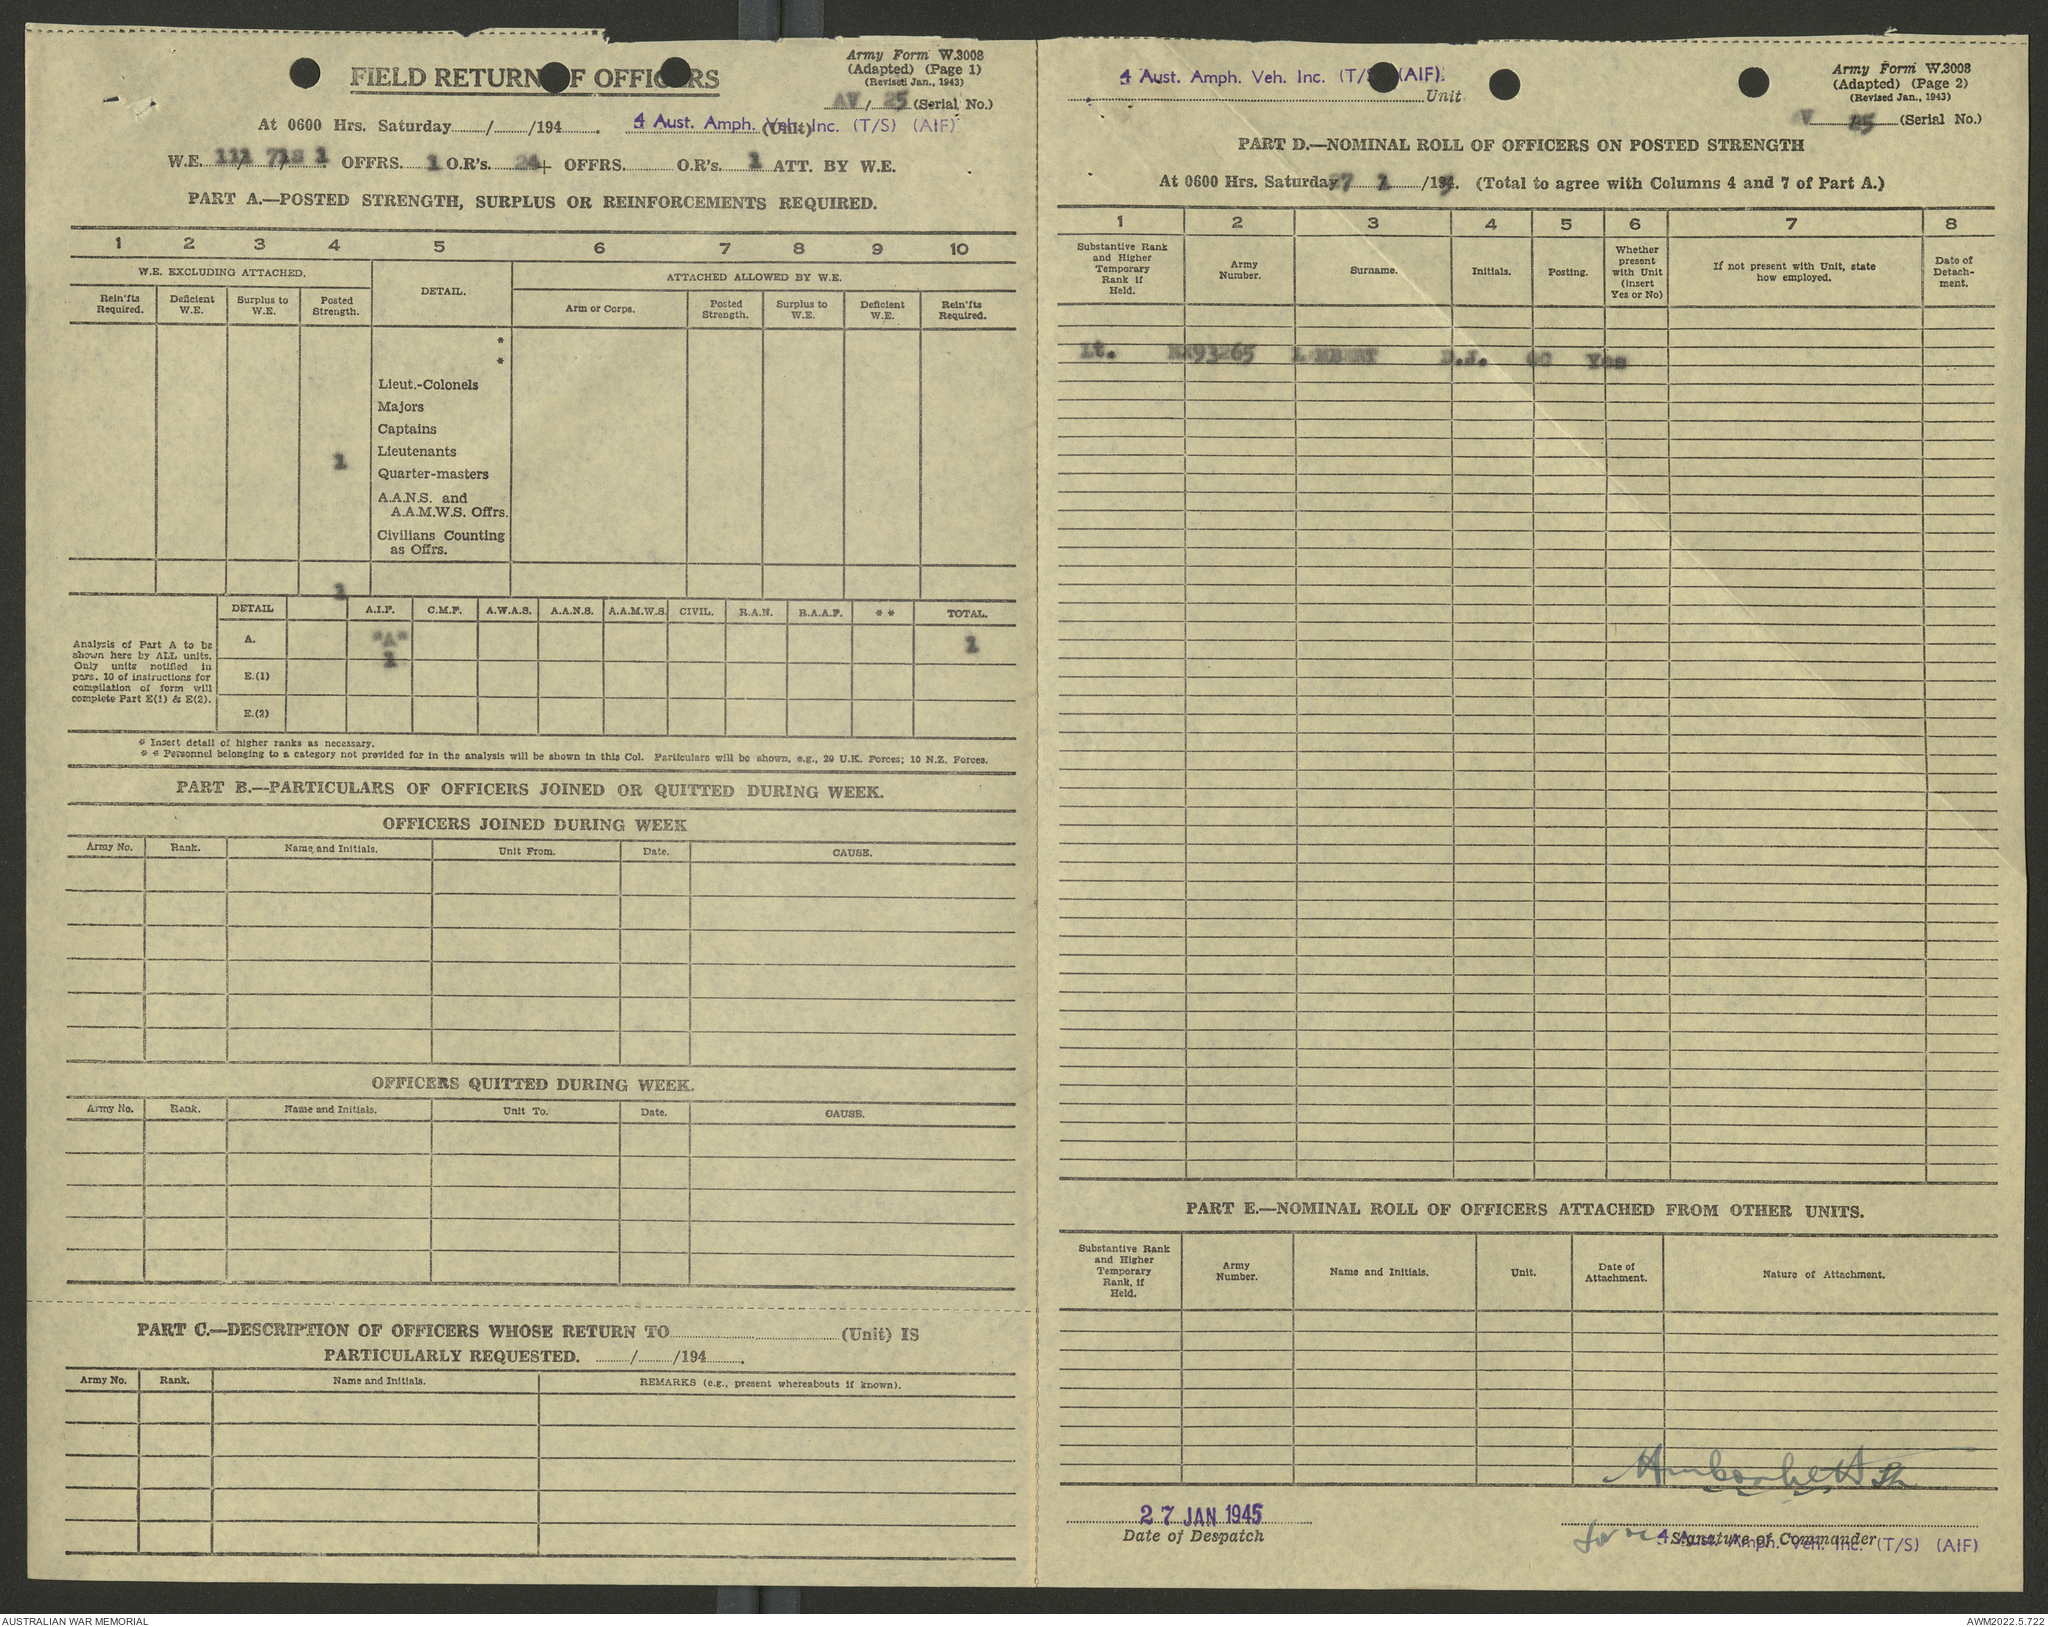 Army Form W.3008
(Adapted) (Page 1)
(Revised Jan., 1943)
FIELD RETURN OF OFFICERS
AV / 25 (Serial No.)
At 0600 Hrs. Saturday / /194 . 4 Aust. Amph. Veh. Inc. (T/S) (AIF)
(Unit)
W.E. OFFRS. 1 O.R's. 24 OFFRS. O.R's. 1 ATT. BY W.E.
PART A.—POSTED STRENGTH, SURPLUS OR REINFORCEMENTS REQUIRED.
1 2 3 4 5 6 7 8 9 10
W.E. EXCLUDING ATTACHED.
DETAIL.
ATTACHED ALLOWED BY W.E.
Rein'fts Required.
Deficient W.E.
Surplus to W.E.
Posted Strength.
Arm or Corps.
Posted Strength.
Surplus to W.E.
Deficient W.E.
Rein'fts Required.
*
*
Lieut.-Colonels
Majors
Captains
Lieutenants
1
Quarter-masters
A.A.N.S. and
A.A.M.W.S. Offrs.
Civilians Counting
as Offrs.
1
Analysis of Part A to be
shown here by ALL units.
Only units notified in
para. 10 of instructions for
compilation of form will
complete Part E(1) & E(2).
DETAIL A.I.F. C.M.F. A.W.A.S. A.A.N.S. A.A.M.W.S. CIVIL. R.A.N. R.A.A.F. * * TOTAL.
A. "A" 1 1
E.(1)
E.(2)
* Insert detail of higher ranks as necessary.
* * Personnel belonging to a category not provided for in the analysis will be shown in this Col. Particulars will be shown, e.g., 20 U.K. Forces; 10 N.Z. Forces.
PART B.—PARTICULARS OF OFFICERS JOINED OR QUITTED DURING WEEK.
OFFICERS JOINED DURING WEEK
Army No. Rank. Name and Initials. Unit From. Date. CAUSE.
OFFICERS QUITTED DURING WEEK.
Army No. Rank. Name and Initials. Unit To. Date. CAUSE.
PART C.—DESCRIPTION OF OFFICERS WHOSE RETURN TO (Unit) IS
PARTICULARLY REQUESTED. / /194 .
Army No. Rank. Name and Initials. REMARKS (e.g., present whereabouts if known).
4 Aust. Amph. Veh. Inc. (T/S) (AIF)
Unit
Army Form W.3008
(Adapted) (Page 2)
(Revised Jan., 1943)
V 25 (Serial No.)
PART D.—NOMINAL ROLL OF OFFICERS ON POSTED STRENGTH
At 0600 Hrs. Saturday 27 1 /194 . (Total to agree with Columns 4 and 7 of Part A.)
1 2 3 4 5 6 7 8
Substantive Rank
and Higher
Temporary
Rank if
Held.
Army
Number.
Surname.
Initials.
Posting.
Whether
present
with Unit
(insert
Yes or No)
If not present with Unit, state
how employed.
Date of
Detach-
ment.
Lt. NX93265 LAMBERT D.J. OC Yes
PART E.—NOMINAL ROLL OF OFFICERS ATTACHED FROM OTHER UNITS.
Substantive Rank
and Higher
Temporary
Rank, if
Held.
Army
Number.
Name and Initials.
Unit.
Date of
Attachment.
Nature of Attachment.
27 JAN 1945
Date of Despatch
for
Signature of Commander
4 Aust. Amph. Veh. Inc. (T/S) (AIF)
AUSTRALIAN WAR MEMORIAL
AWM2022.5.722